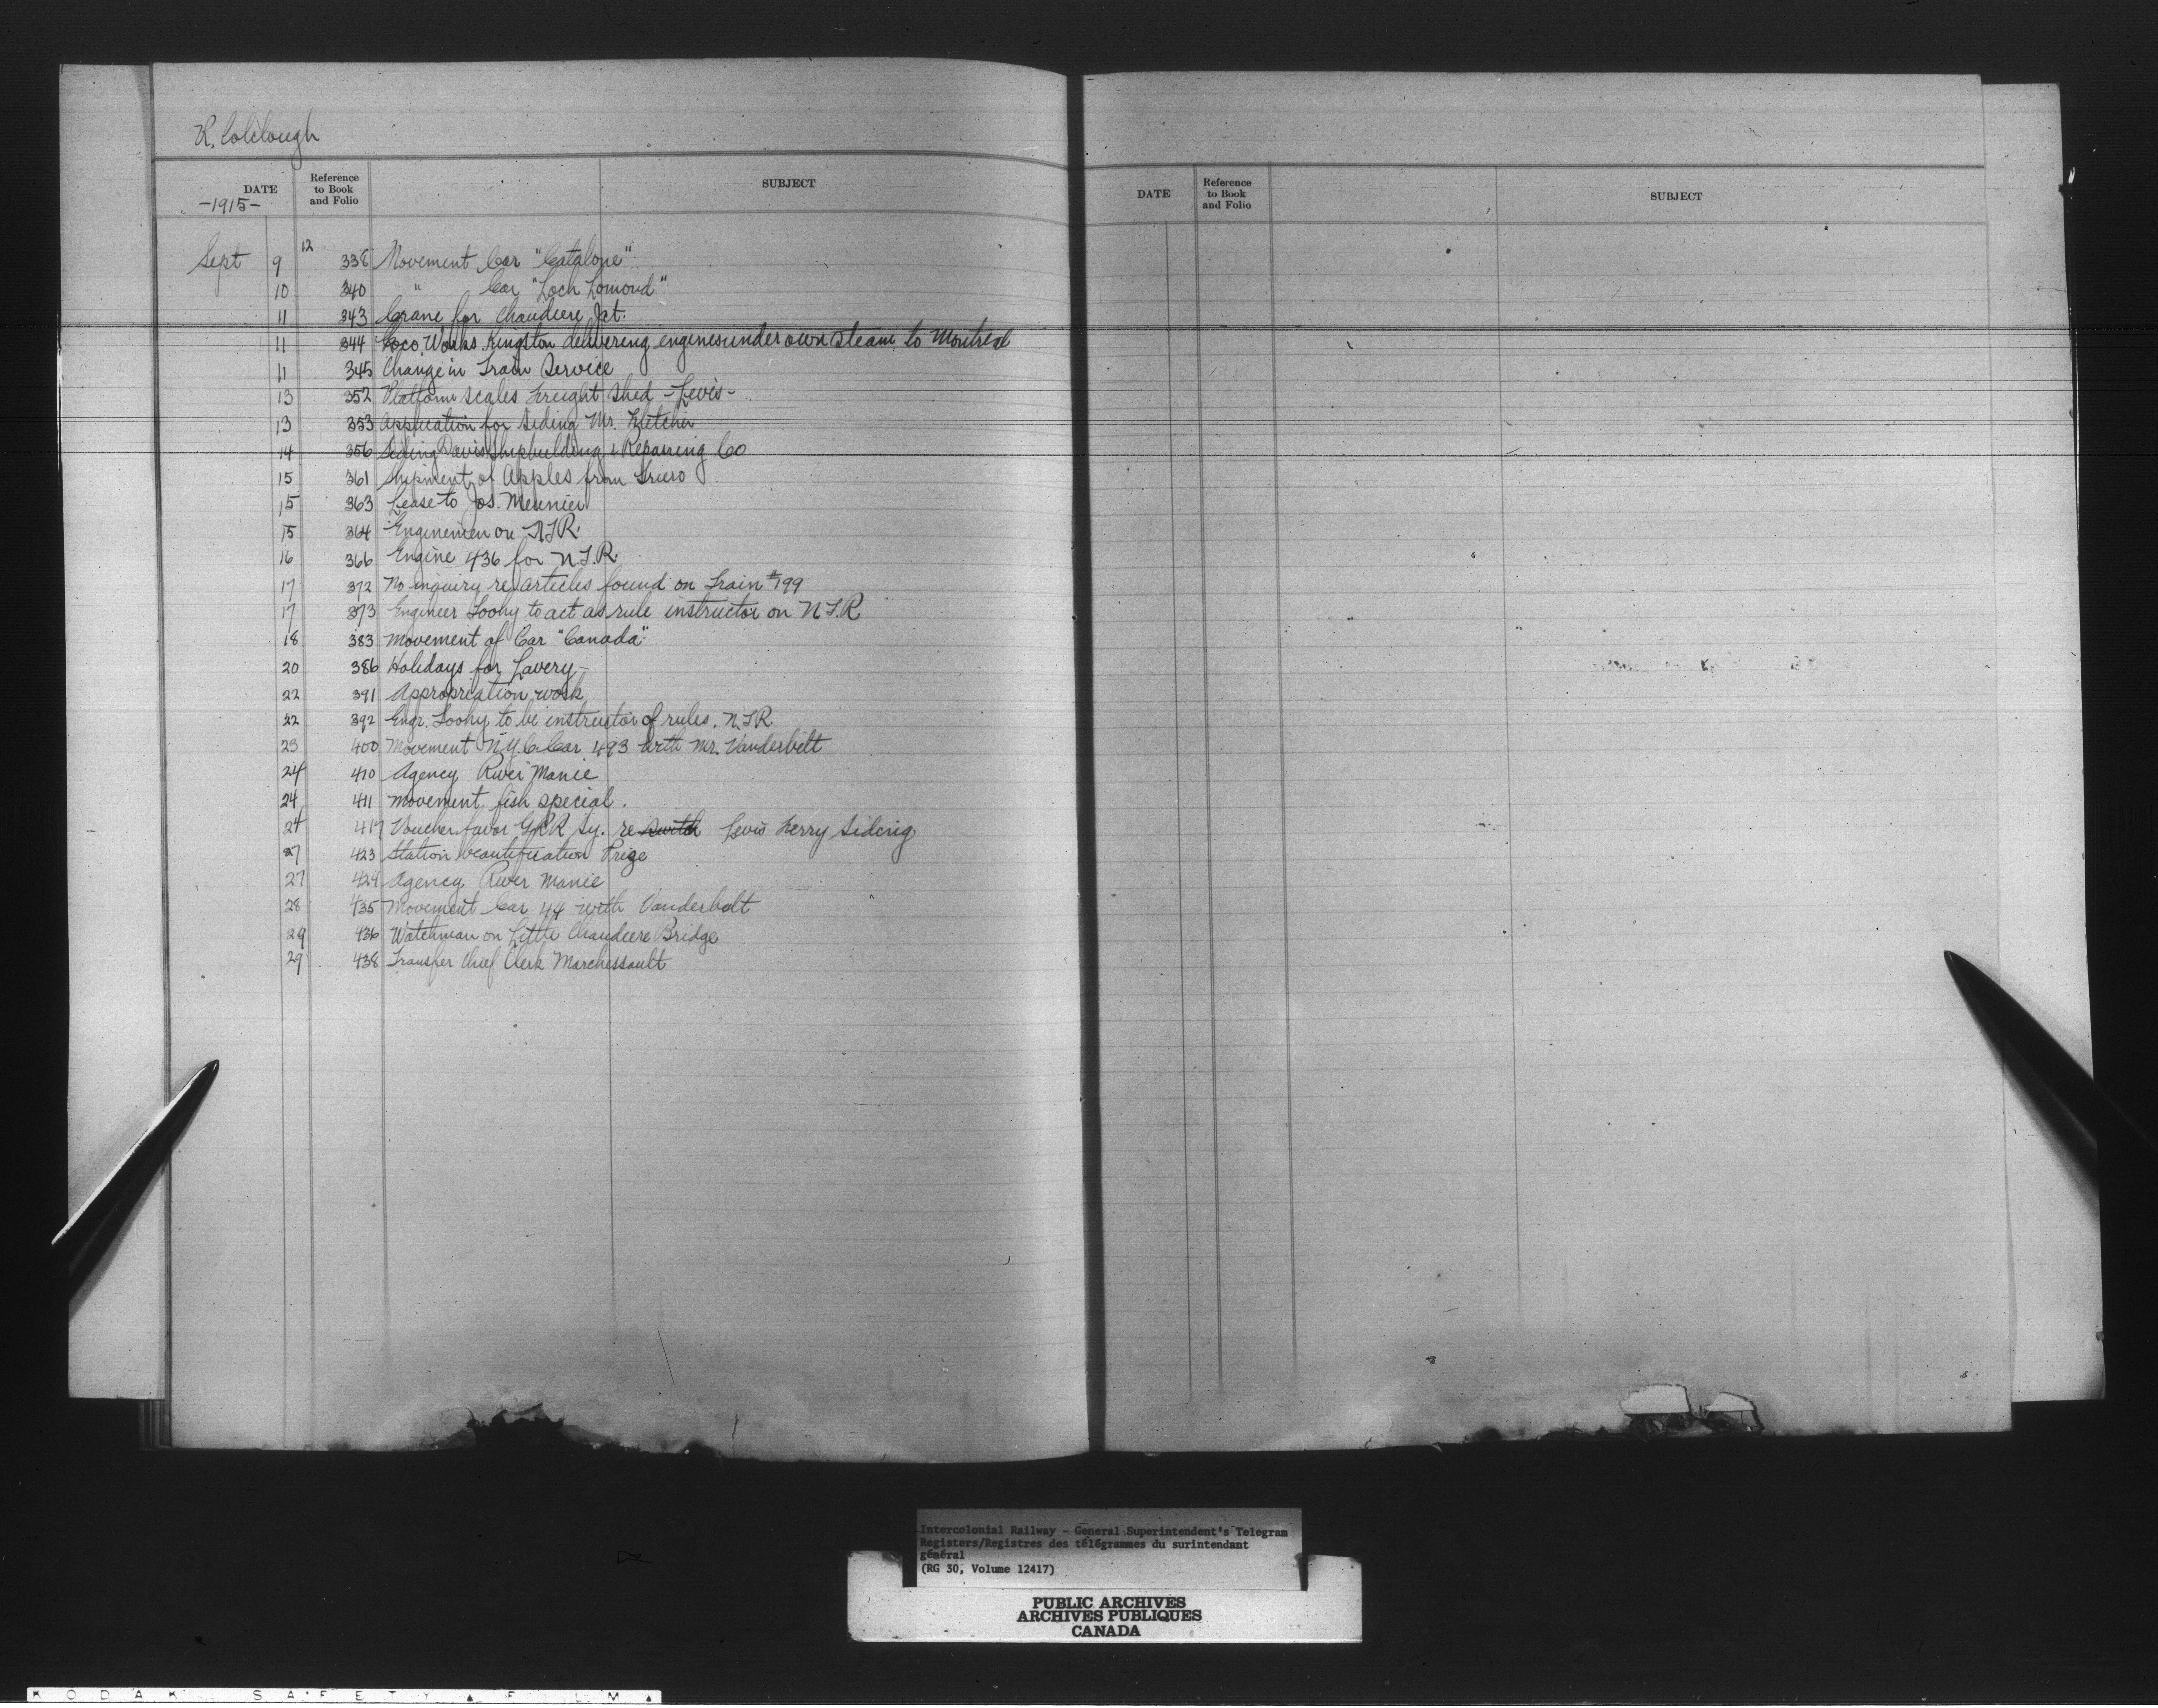 R. Colclough
DATE Reference to Book and Folio SUBJECT
-1915-
Sept 9 12 338 Movement Car "Catalone"
10 340 " Car "Loch Lomond"
11 343 Crane for Chaudiere Jct.
11 344 Loco. Works Kingston delivering engines under own steam to Montreal
11 345 Change in Train Service
13 352 Platform scales Freight Shed - Levis -
13 353 Application for Siding Mr. Fletcher
14 356 Siding Davis Shipbuilding & Repairing Co
15 361 Shipment of Apples from Truro
15 363 Lease to Jos. Meunier
15 364 Enginemen on N.T.R.
16 366 Engine 436 for N.T.R.
17 372 No inquiry re articles found on Train #199
17 373 Engineer Toohy to act as rule instructor on N.T.R
18 383 Movement of Car "Canada"
20 386 Holidays for Lavery -
22 391 Appropriation work
22 392 Engr. Toohy to be instructor of rules. N.T.R.
23 400 Movement N.Y.C. Car 493 with Mr. Vanderbilt
24 410 Agency River Manie
24 411 Movement fish special.
24 417 Voucher favor G.T.R Sy. re switch Levis Ferry Siding
27 423 Station beautification Prize
27 424 Agency River Manie
28 435 Movement Car 44 with Vanderbilt
29 436 Watchman on Little Chaudiere Bridge
29 438 Transfer Chief Clerk Marchessault
DATE Reference to Book and Folio SUBJECT
Intercolonial Railway - General Superintendent's Telegram
Registers/Registres des télégrammes du surintendant
général
(RG 30, Volume 12417)
PUBLIC ARCHIVES
ARCHIVES PUBLIQUES
CANADA
KODAK SAFETY FILM